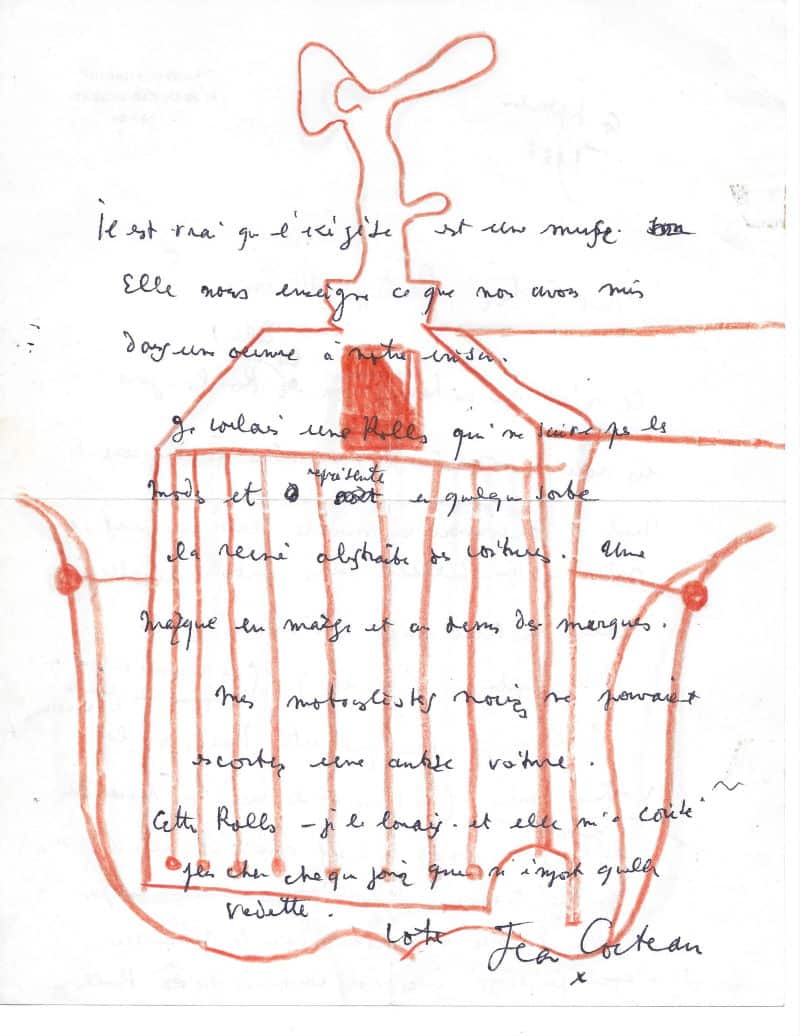 Il est vrai que l'exégèse est une muse.
Elle nous enseigne ce que nos avons mis
dans une œuvre à notre insu.
Je voulais une Rolls qui ne suive pas les
modes et représente en quelque sorte
la reine abstraite des voitures. Une
marque en marge et au dessus des marques.
Mes motocyclistes noirs ne pouvaient
escorter une autre voiture.
Cette Rolls – je la louais. et elle m'a coûté
plus cher chaque jour que n'importe quelle
vedette.
votre Jean Cocteau